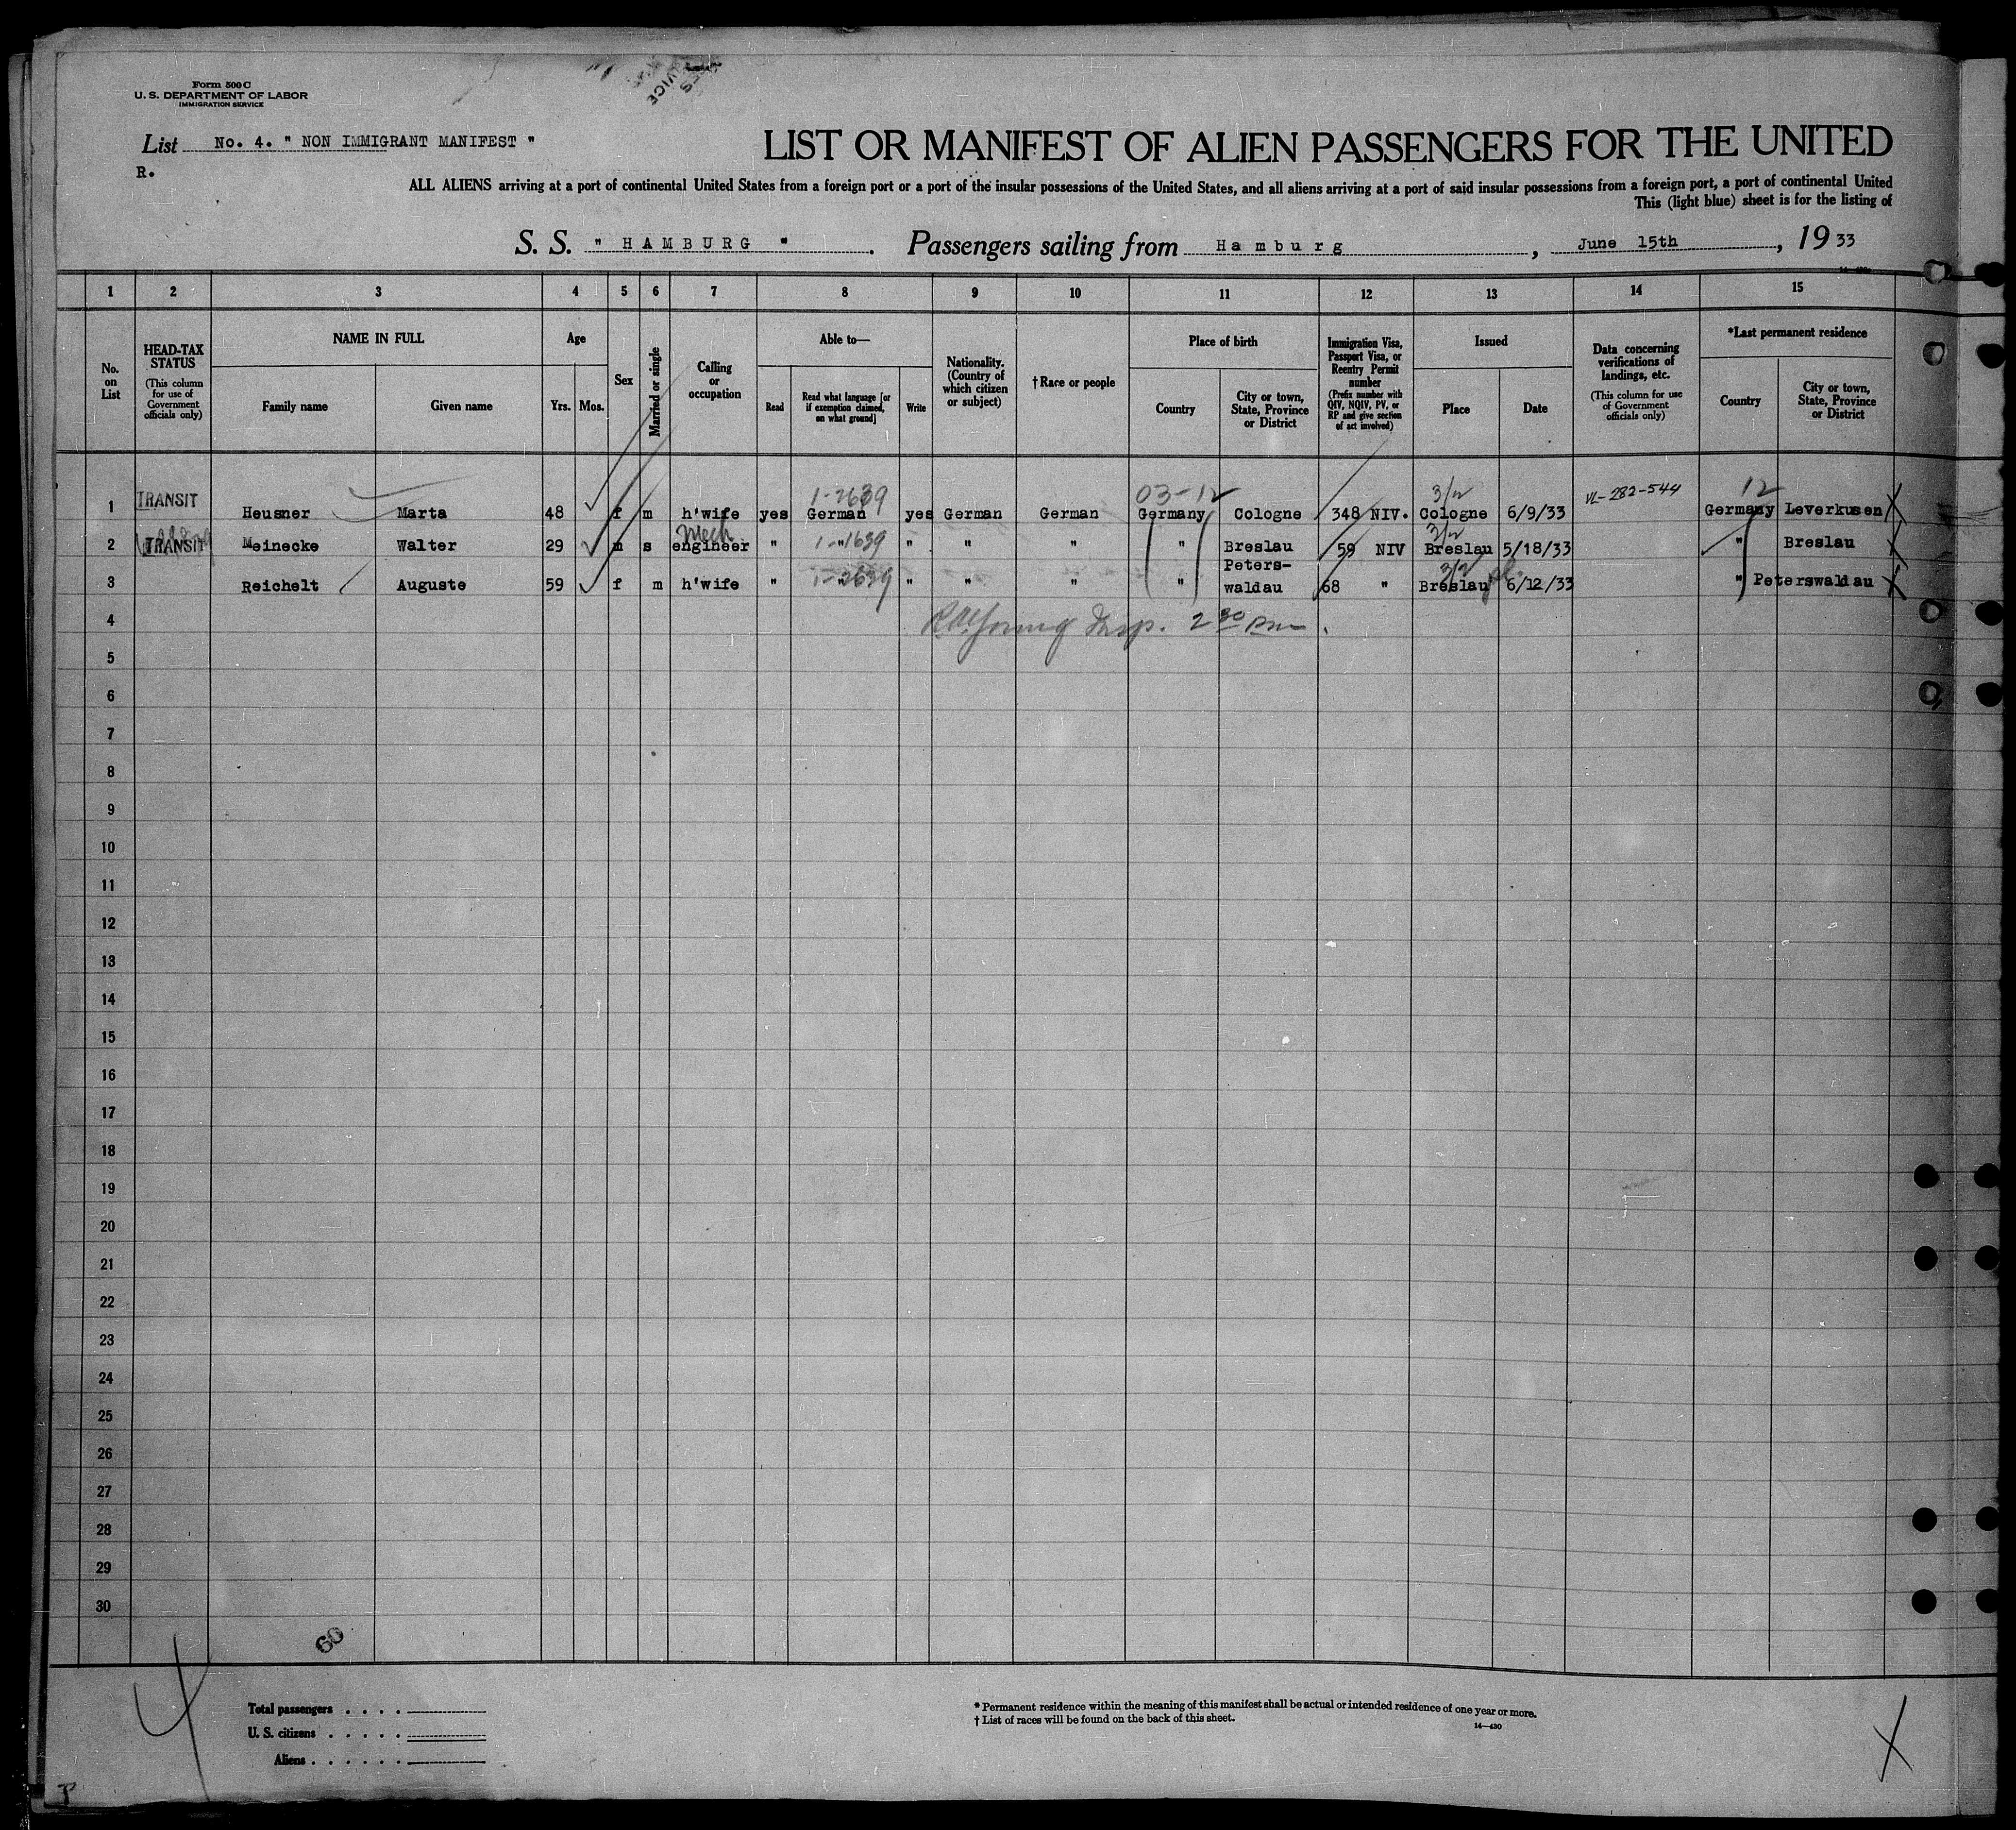 Form 500 C
U. S. DEPARTMENT OF LABOR
IMMIGRATION SERVICE
List No. 4. " NON IMMIGRANT MANIFEST "
R.
LIST OR MANIFEST OF ALIEN PASSENGERS FOR THE UNITED
ALL ALIENS arriving at a port of continental United States from a foreign port or a port of the insular possessions of the United States, and all aliens arriving at a port of said insular possessions from a foreign port, a port of continental United
This (light blue) sheet is for the listing of
S. S. " HAMBURG " . Passengers sailing from Hamburg , June 15th , 19 33
1 2 3 4 5 6 7 8 9 10 11 12 13 14 15
No. on List
HEAD-TAX STATUS
(This column for use of Government officials only)
NAME IN FULL
Family name
Given name
Age
Yrs. Mos.
Sex
Married or single
Calling or occupation
Able to—
Read
Read what language [or if exemption claimed, on what ground]
Write
Nationality. (Country of which citizen or subject)
† Race or people
Place of birth
Country
City or town, State, Province or District
Immigration Visa, Passport Visa, or Reentry Permit number
(Prefix number with QIV, NQIV, PV, or RP and give section of act involved)
Issued
Place
Date
Data concerning verifications of landings, etc.
(This column for use of Government officials only)
*Last permanent residence
Country
City or town, State, Province or District
1-2639 03-12 3/2 VL-282-544 12
1 TRANSIT Heusner Marta 48 f m h'wife yes German yes German German Germany Cologne 348 NIV. Cologne 6/9/33 Germany Leverkusen X
Mech 3/2
2 TRANSIT Meinecke Walter 29 m s engineer " " 1-1639 " " " " Breslau 59 NIV Breslau 5/18/33 " Breslau X
Peters- 3/2
3 Reichelt Auguste 59 f m h'wife " " 1-2639 " " " " waldau 68 " Breslau 6/12/33 " Peterswaldau X
4 Young Insp. 2 30 pm.
5
6
7
8
9
10
11
12
13
14
15
16
17
18
19
20
21
22
23
24
25
26
27
28
29
30
60
Total passengers . . . .
U. S. citizens . . . . .
Aliens . . . . . .
* Permanent residence within the meaning of this manifest shall be actual or intended residence of one year or more.
† List of races will be found on the back of this sheet.
14—430
X